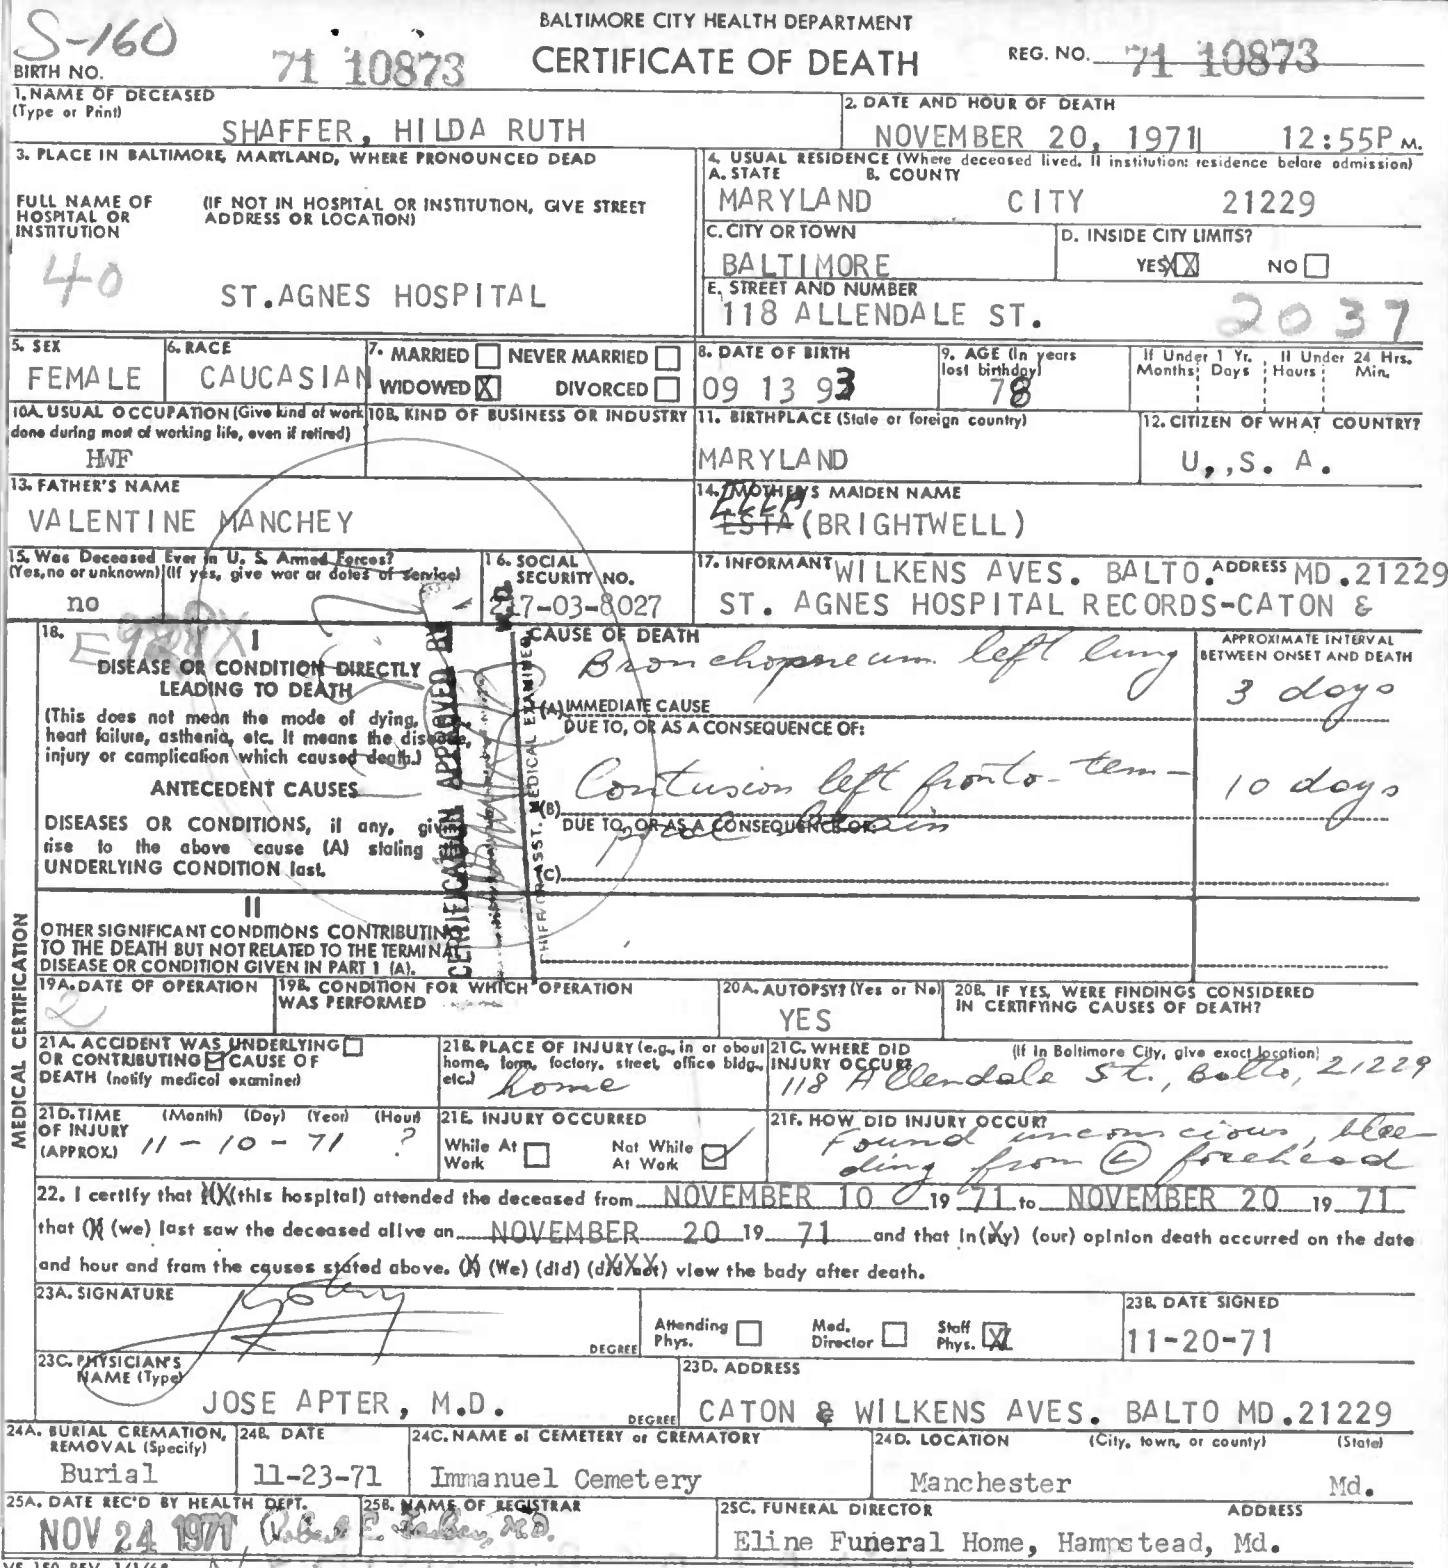 S-160
BALTIMORE CITY HEALTH DEPARTMENT
BIRTH NO. 71 10873 CERTIFICATE OF DEATH REG. NO. 71 10873
1. NAME OF DECEASED
(Type or Print)
SHAFFER, HILDA RUTH
2. DATE AND HOUR OF DEATH
NOVEMBER 20, 1971 12:55P M.
3. PLACE IN BALTIMORE, MARYLAND, WHERE PRONOUNCED DEAD
FULL NAME OF HOSPITAL OR INSTITUTION
(IF NOT IN HOSPITAL OR INSTITUTION, GIVE STREET ADDRESS OR LOCATION)
40
ST.AGNES HOSPITAL
4. USUAL RESIDENCE (Where deceased lived. If institution: residence before admission)
A. STATE B. COUNTY
MARYLAND CITY 21229
C. CITY OR TOWN
BALTIMORE
D. INSIDE CITY LIMITS?
YES X NO
E. STREET AND NUMBER
118 ALLENDALE ST. 2037
5. SEX
FEMALE
6. RACE
CAUCASIAN
7. MARRIED NEVER MARRIED
WIDOWED X DIVORCED
8. DATE OF BIRTH
09 13 93
9. AGE (In years last birthday)
78
If Under 1 Yr. If Under 24 Hrs.
Months Days Hours Min.
10A. USUAL OCCUPATION (Give kind of work done during most of working life, even if retired)
HWF
10B. KIND OF BUSINESS OR INDUSTRY
11. BIRTHPLACE (State or foreign country)
MARYLAND
12. CITIZEN OF WHAT COUNTRY?
U,,S. A.
13. FATHER'S NAME
VALENTINE MANCHEY
14. MOTHER'S MAIDEN NAME
ELLA
ESTA (BRIGHTWELL)
15. Was Deceased Ever in U. S. Armed Forces?
(Yes, no or unknown) (If yes, give war or dates of service)
no
16. SOCIAL SECURITY NO.
217-03-8027
17. INFORMANT WILKENS AVES. BALTO. ADDRESS MD.21229
ST. AGNES HOSPITAL RECORDS-CATON &
18.
I
DISEASE OR CONDITION DIRECTLY LEADING TO DEATH
(This does not mean the mode of dying, heart failure, asthenia, etc. It means the disease, injury or complication which caused death.)
ANTECEDENT CAUSES
DISEASES OR CONDITIONS, if any, giving rise to the above cause (A) stating UNDERLYING CONDITION last.
CERTIFICATION APPROVED BY
M.D.
CHIEF OR ASST. MEDICAL EXAMINER
CAUSE OF DEATH
Bronchopneum. left lung
(A) IMMEDIATE CAUSE
DUE TO, OR AS A CONSEQUENCE OF:
Contusion left fronto-tem-
(B)
DUE TO, OR AS A CONSEQUENCE OF:
poral brain
(C)
APPROXIMATE INTERVAL BETWEEN ONSET AND DEATH
3 days
10 days
II
OTHER SIGNIFICANT CONDITIONS CONTRIBUTING TO THE DEATH BUT NOT RELATED TO THE TERMINAL DISEASE OR CONDITION GIVEN IN PART 1 (A).
MEDICAL CERTIFICATION
19A. DATE OF OPERATION
2
19B. CONDITION FOR WHICH OPERATION WAS PERFORMED
20A. AUTOPSY? (Yes or No)
YES
20B. IF YES, WERE FINDINGS CONSIDERED IN CERTIFYING CAUSES OF DEATH?
21A. ACCIDENT WAS UNDERLYING OR CONTRIBUTING CAUSE OF DEATH (notify medical examiner)
21B. PLACE OF INJURY (e.g., in or about home, farm, factory, street, office bldg., etc.)
home
21C. WHERE DID INJURY OCCUR? (If in Baltimore City, give exact location)
118 Allendale St., Balto, 21229
21D. TIME OF INJURY (APPROX.) (Month) (Day) (Year) (Hour)
11-10-71 ?
21E. INJURY OCCURRED
While At Work Not While At Work
21F. HOW DID INJURY OCCUR?
Found unconscious, blee-
ding from L forehead
22. I certify that XX (this hospital) attended the deceased from NOVEMBER 10 19 71 to NOVEMBER 20 19 71
that (X) (we) last saw the deceased alive on NOVEMBER 20 19 71 and that in (my) (our) opinion death occurred on the date
and hour and from the causes stated above. (X) (We) (did) (did not) view the body after death.
23A. SIGNATURE
DEGREE
Attending Phys. Med. Director Staff Phys. X
23B. DATE SIGNED
11-20-71
23C. PHYSICIAN'S NAME (Type)
JOSE APTER, M.D.
DEGREE
23D. ADDRESS
CATON & WILKENS AVES. BALTO MD.21229
24A. BURIAL CREMATION, REMOVAL (Specify)
Burial
24B. DATE
11-23-71
24C. NAME of CEMETERY or CREMATORY
Immanuel Cemetery
24D. LOCATION (City, town, or county) (State)
Manchester Md.
25A. DATE REC'D BY HEALTH DEPT.
NOV 24 1971
25B. NAME OF REGISTRAR
Robert E. Farber, M.D.
25C. FUNERAL DIRECTOR ADDRESS
Eline Funeral Home, Hampstead, Md.